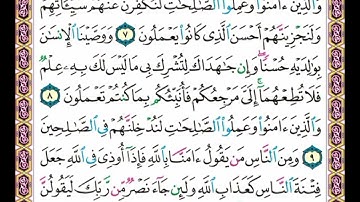 وَالَّذِينَ ءَامَنُوا وَعَمِلُوا الصَّالِحَاتِ لَنُكَفِّرَنَّ عَنْهُمْ سَيِّئَاتِهِمْ
وَلَنَجْزِيَنَّهُمْ أَحْسَنَ الَّذِى كَانُوا يَعْمَلُونَ ٧ وَوَصَّيْنَا الْإِنسَانَ
بِوَالِدَيْهِ حُسْنًا وَإِن جَاهَدَاكَ لِتُشْرِكَ بِى مَا لَيْسَ لَكَ بِهِ عِلْمٌ
فَلَا تُطِعْهُمَا إِلَىَّ مَرْجِعُكُمْ فَأُنَبِّئُكُم بِمَا كُنتُمْ تَعْمَلُونَ ٨
وَالَّذِينَ ءَامَنُوا وَعَمِلُوا الصَّالِحَاتِ لَنُدْخِلَنَّهُمْ فِى الصَّالِحِينَ
٩ وَمِنَ النَّاسِ مَن يَقُولُ ءَامَنَّا بِاللَّهِ فَإِذَا أُوذِىَ فِى اللَّهِ جَعَلَ
فِتْنَةَ النَّاسِ كَعَذَابِ اللَّهِ وَلَئِن جَاءَ نَصْرٌ مِّن رَّبِّكَ لَيَقُولُنَّ